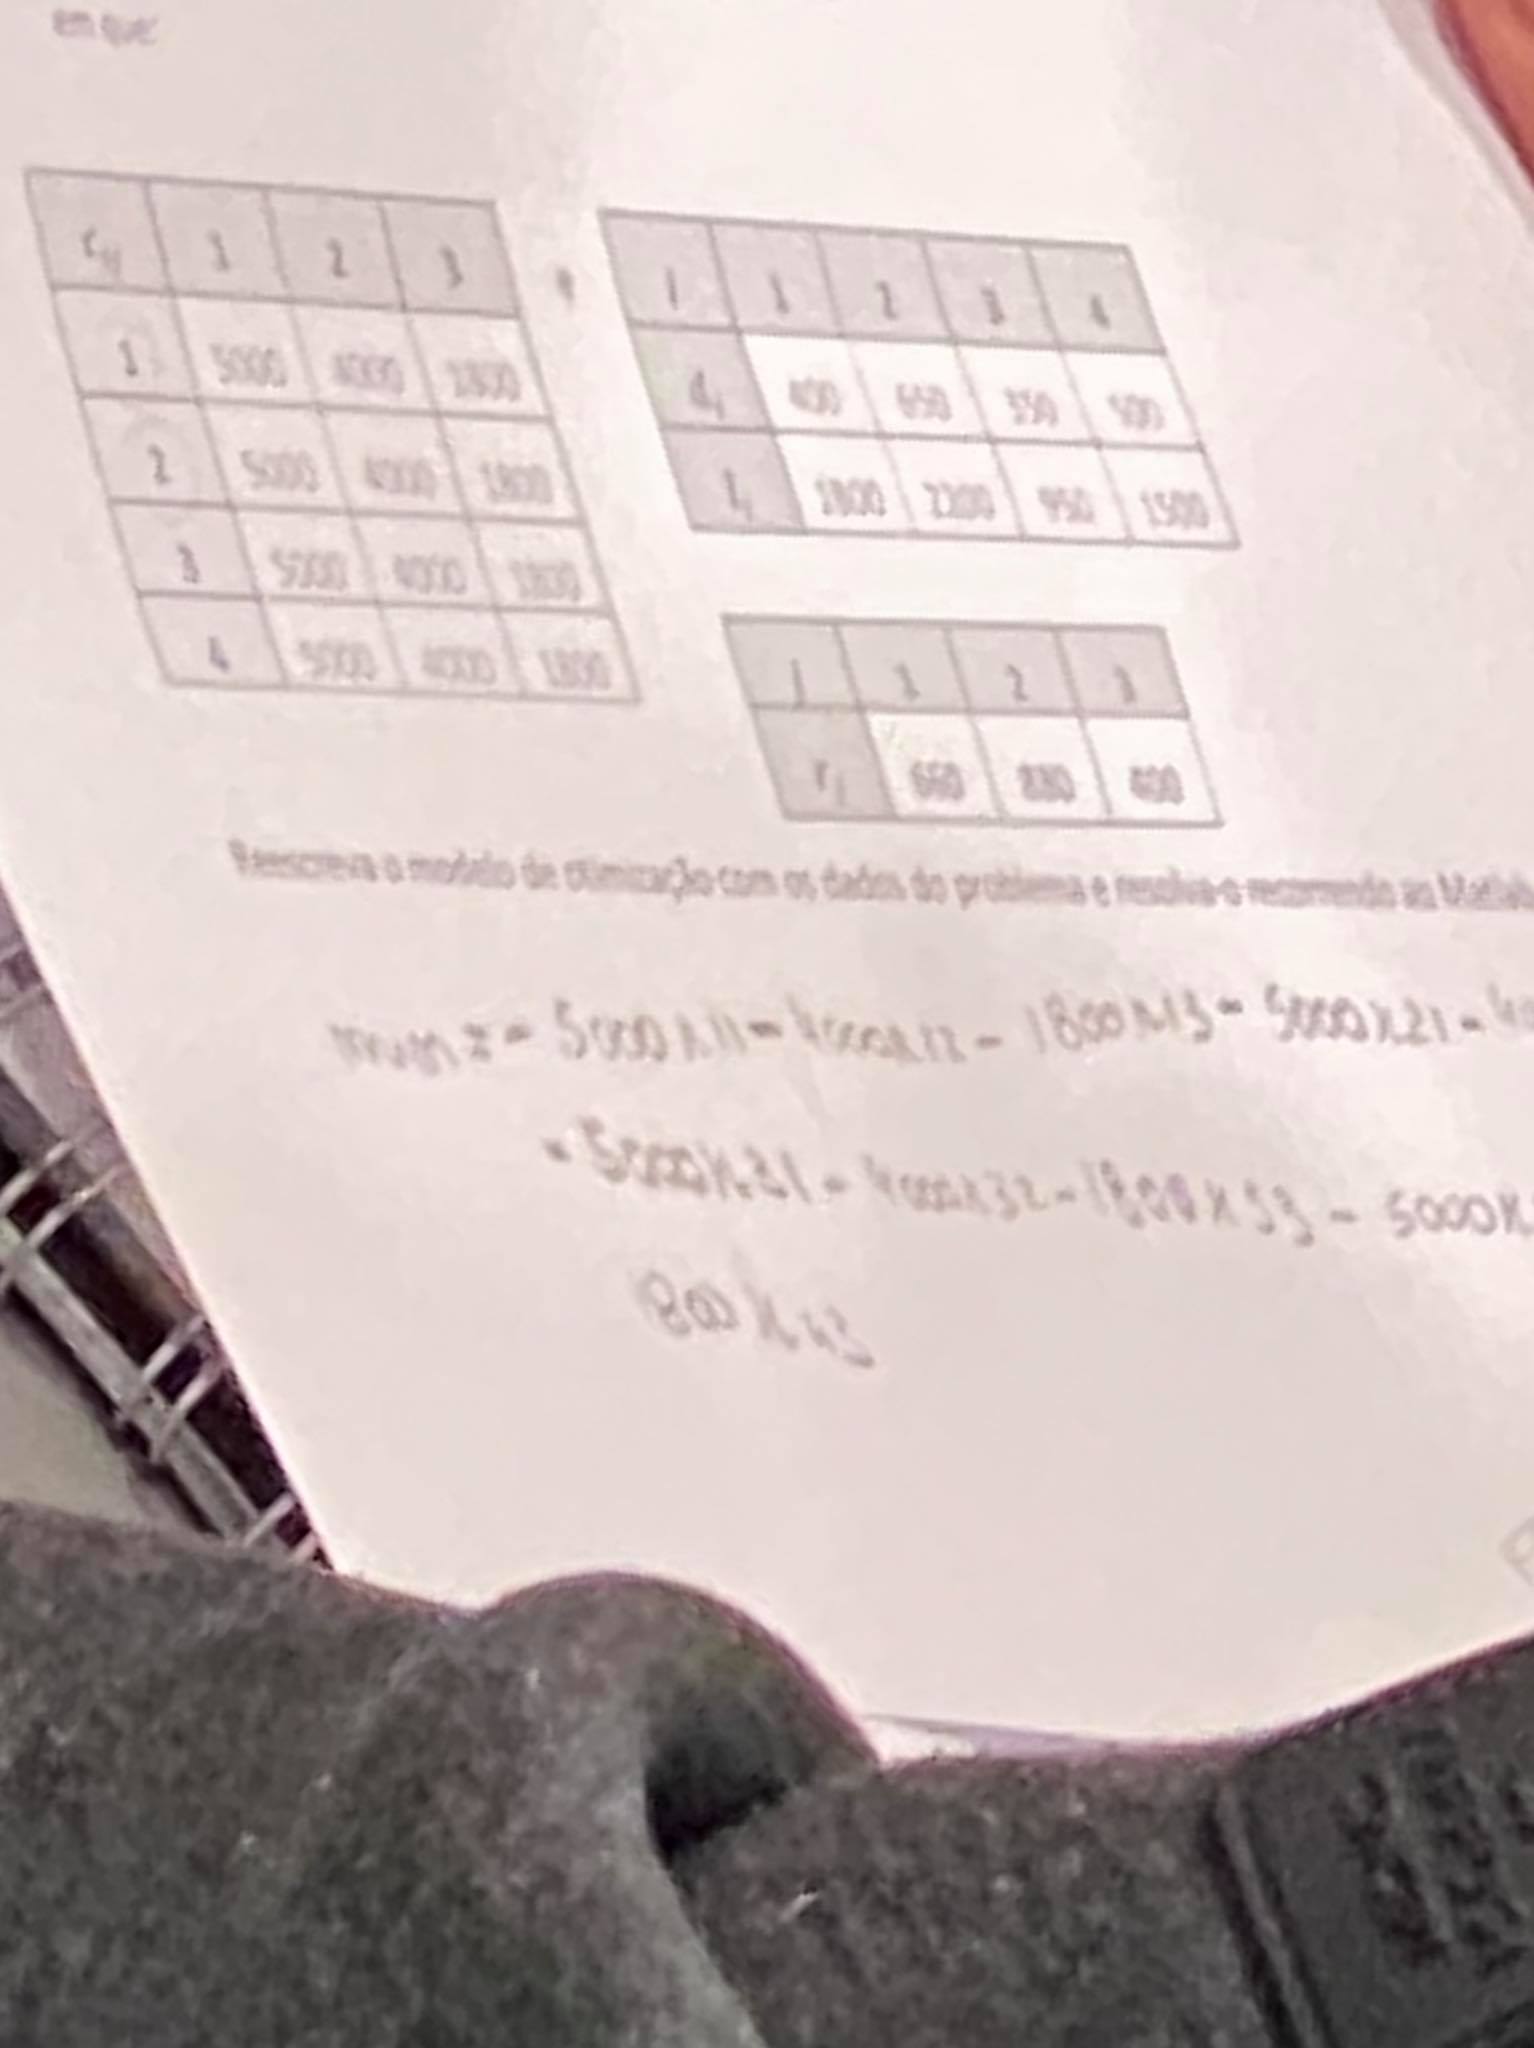 em que
c_ij 1 2 3
1 5000 4000 1800
2 5000 4000 1800
3 5000 4000 1800
4 5000 4000 1800
e
i 1 2 3 4
d_i 400 650 350 500
l_i 1800 2200 950 1500
j 1 2 3
r_j 660 880 400
Reescreva o modelo de otimização com os dados do problema e resolva-o recorrendo ao Matlab
min z = 5000x11 - 4000x12 - 1800x13 - 5000x21 -
- 5000x31 - 4000x32 - 1800x33 - 5000x
800x43